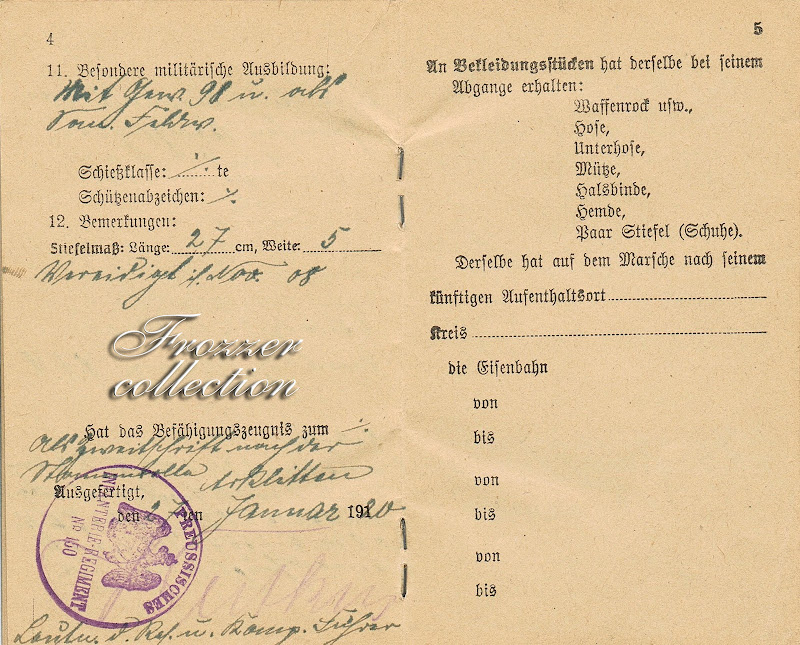 4
11. Besondere militärische Ausbildung:
Mit Gew. 98 u. als
San. Feldw.
Schießklasse: ./. te
Schützenabzeichen: ./.
12. Bemerkungen:
Stiefelmaß: Länge: 27 cm, Weite: 5
Vereidigt i. Nov. 08
Frozzer
collection
Hat das Befähigungszeugnis zum ./.
Als Zweitschrift nach der
Stammrolle
Ausgefertigt, Arklitten
den 2. ten Januar 1920
PREUSSISCHES
INFANTERIE-REGIMENT
No 150
Leutn. d. Res. u. Komp. Führer
5
An Bekleidungsstücken hat derselbe bei seinem
Abgange erhalten:
Waffenrock usw.,
Hose,
Unterhose,
Mütze,
Halsbinde,
Hemde,
Paar Stiefel (Schuhe).
Derselbe hat auf dem Marsche nach seinem
künftigen Aufenthaltsort
Kreis
die Eisenbahn
von
bis
von
bis
von
bis